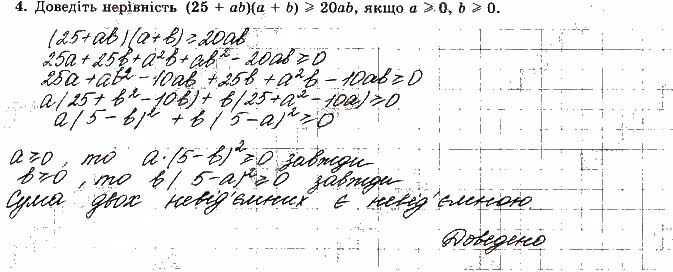 4. Доведіть нерівність (25 + ab)(a + b) ⩾ 20ab, якщо a ⩾ 0, b ⩾ 0.
(25+ab)(a+b)≥20ab
25a+25b+a²b+ab²-20ab≥0
25a+ab²-10ab+25b+a²b-10ab≥0
a(25+b²-10b)+b(25+a²-10a)≥0
a(5-b)²+b(5-a)²≥0
a≥0, то a·(5-b)²≥0 завжди
b≥0, то b(5-a)²≥0 завжди
Сума двох невід'ємних є невід'ємною
Доведено